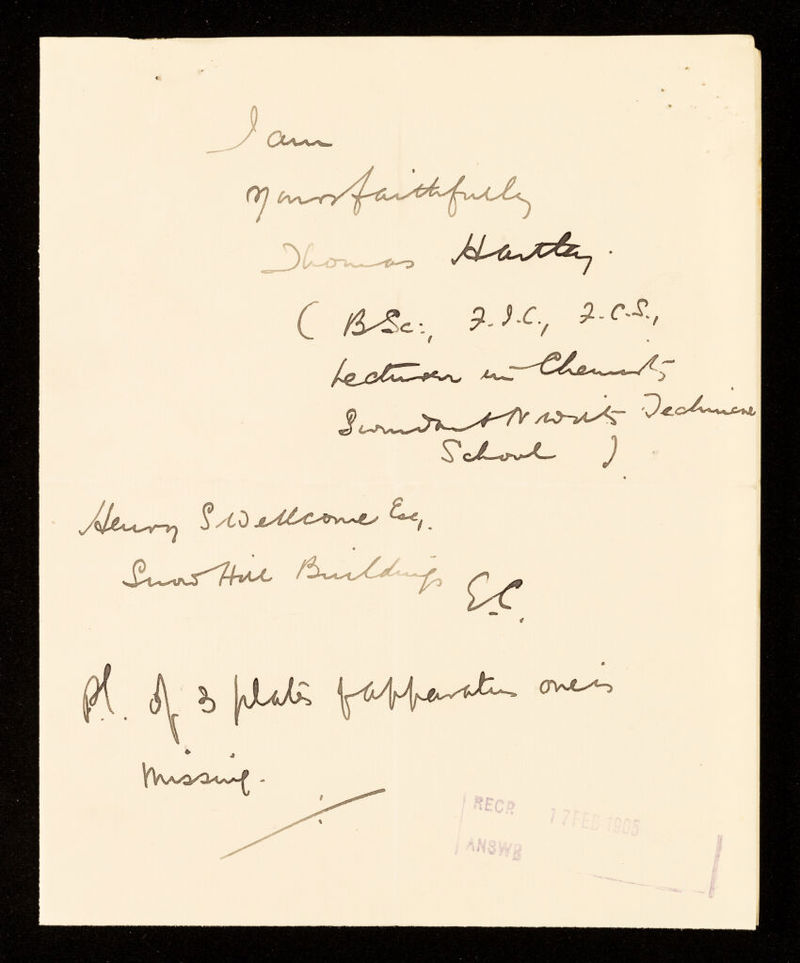 I am
Yours faithfully
Thomas Hartley.
( B Sc:, F.I.C., F.C.S.,
Lecturer in Chemistry
Swindon & N Wilts Technical
School )
Henry S Wellcome Esq.
Snow Hill Buildings
E.C.
P.S. Of 3 plates of apparatus one is
missing.
RECD. 17 FEB 1905
ANSWD